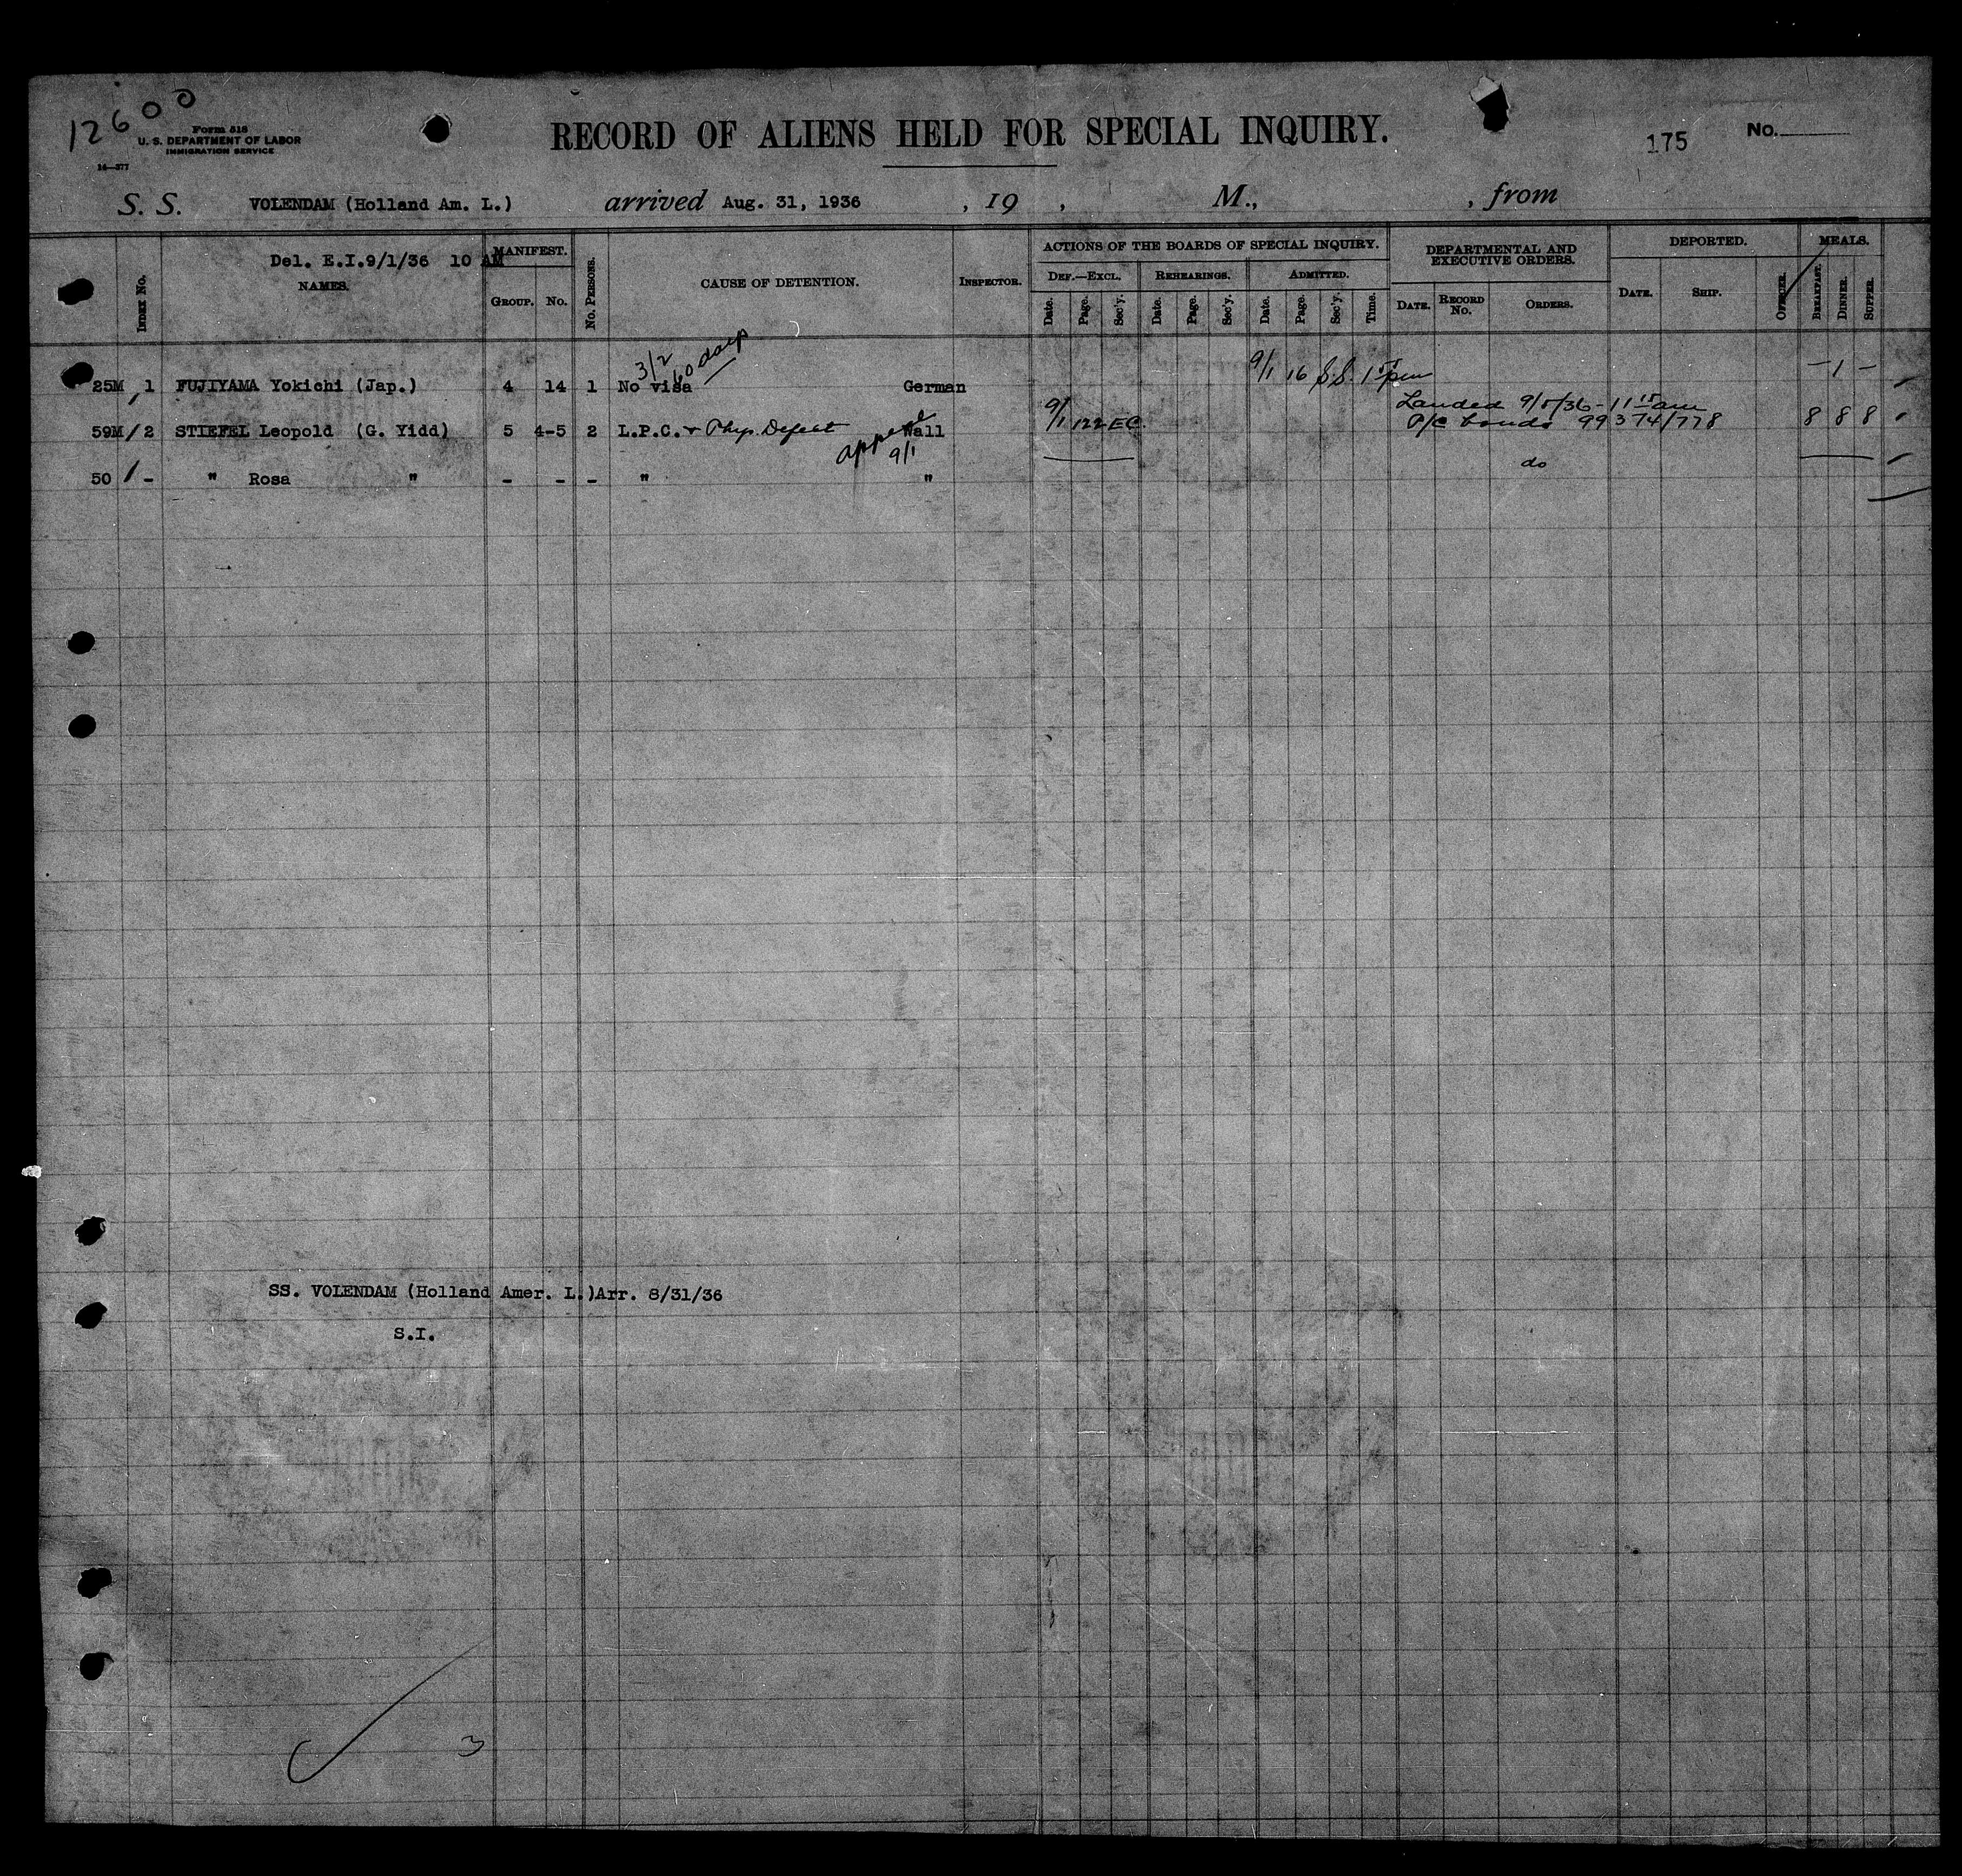 12600
Form 518
U. S. DEPARTMENT OF LABOR
IMMIGRATION SERVICE
14—377
RECORD OF ALIENS HELD FOR SPECIAL INQUIRY.
175 No.
S. S. VOLENDAM (Holland Am. L.) arrived Aug. 31, 1936 , 19 , M., , from
Del. E.I.9/1/36 10 AM
INDEX No. NAMES. MANIFEST. GROUP. No. No. PERSONS. CAUSE OF DETENTION. INSPECTOR. ACTIONS OF THE BOARDS OF SPECIAL INQUIRY. DEF.—EXCL. REHEARINGS. ADMITTED. DEPARTMENTAL AND EXECUTIVE ORDERS. DEPORTED. MEALS.
Date. Page. Sec'y. Date. Page. Sec'y. Date. Page. Sec'y. Time. DATE. RECORD No. ORDERS. DATE. SHIP. OFFICER. BREAKFAST. DINNER. SUPPER.
3/2 60 days
25M 1 FUJIYAMA Yokichi (Jap.) 4 14 1 No visa German 9/1 16 S.S. 1 pm – 1 –
Landed 9/5/36 - 11 15 am
59M 2 STIEFEL Leopold (G. Yidd) 5 4-5 2 L.P.C. + Phys. Defect Wall 9/1 122 EC. P/C bonds 99374/778 8 8 8
9/1
do
50 - " Rosa " - - - " "
SS. VOLENDAM (Holland Amer. L.)Arr. 8/31/36
S.I.
3